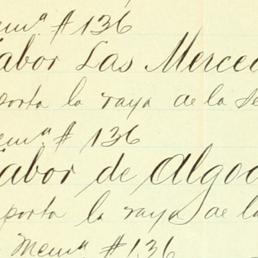 Mem.ª # 136
Labor Las Merced
porta la raya de la Se
Mem.ª # 136
Labor de Algod
porta la raya de la
Mem.ª # 136